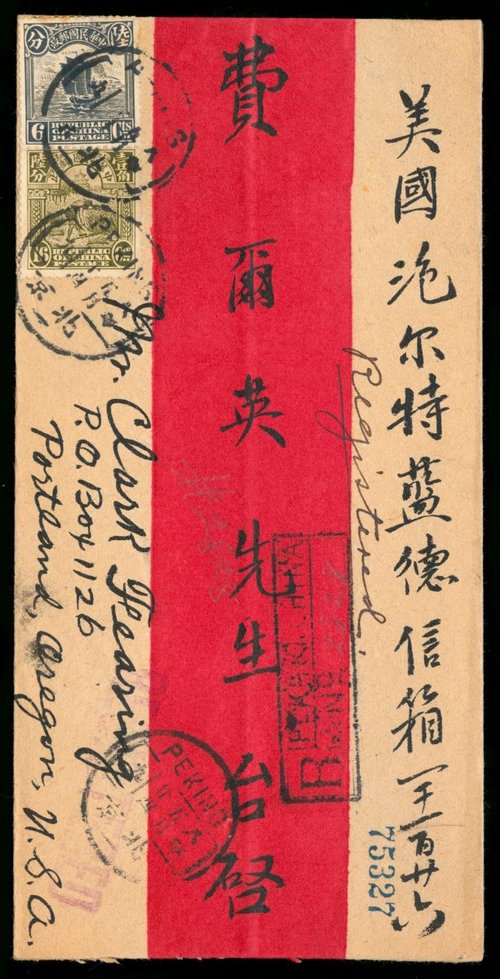 美國沲尔特蓝德信箱一千一百廿六
費爾英先生台啓
Mr. Clark Fearing
P.O. Box 1126
Portland, Oregon, U.S.A.
Registered,
75327
分 中華民國郵政 陸
6 REPUBLIC OF CHINA POSTAGE CTS
陸分 壹角
REPUBLIC OF CHINA POSTAGE
PEKING
北京
R PEKING